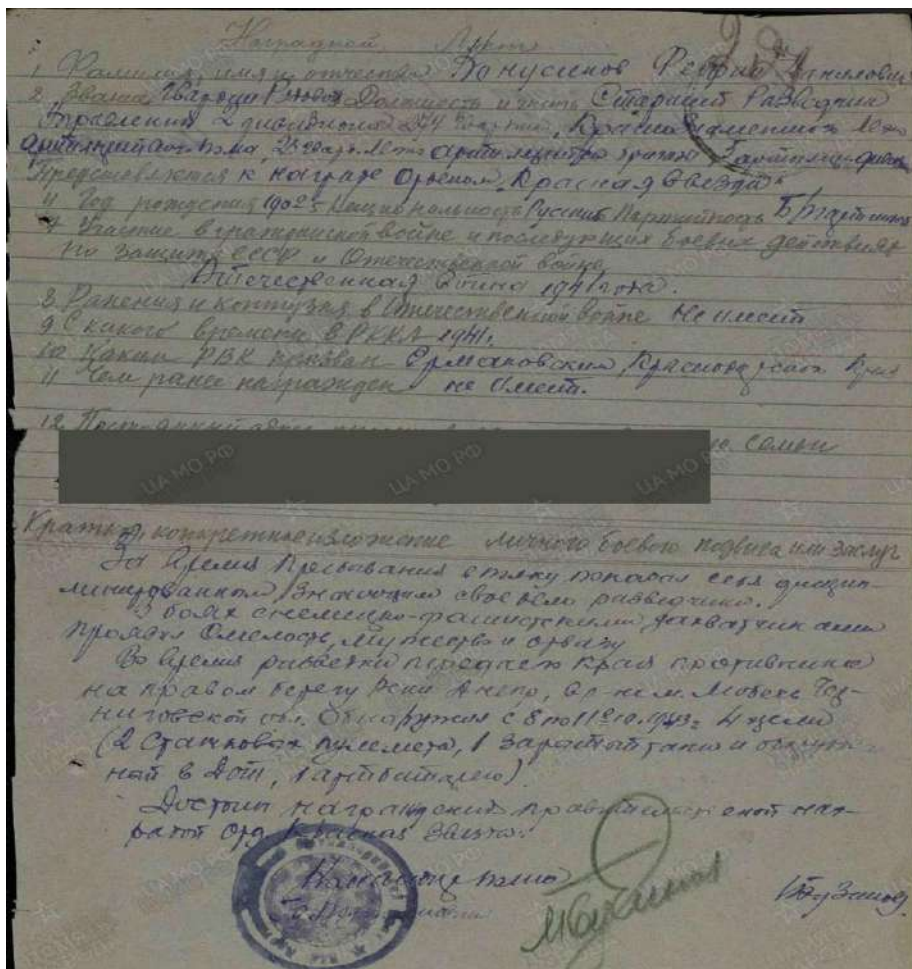 Наградной Лист
1 Фамилия, имя и отчество Конусенов
2 Звание Гвардии Рядовой Должность и часть Старший Разведчик
Управления 2 дивизиона Краснознаменного
Представляется к награде Орденом „Красная Звезда"
4 Год рождения 1902 г. Национальность Русский Партийность Б/партийный
7 Участие в гражданской войне и последующих боевых действиях
по защите СССР и Отечественной войне
Отечественная Война 1941 года.
8 Ранения и контузия в Отечественной войне не имеет
9 С какого времени в РККА 1941г.
10 Каким РВК призван Ермаковским, Красноярского Края
11 Чем ранее награжден не имеет.
12 семьи
Краткое, конкретное изложение личного боевого подвига или заслуг
За время пребывания в полку показал себя дисцип-
линированным знающим свое дело разведчика.
В боях с немецко-фашистскими захватчиками
проявил смелость, мужество и отвагу
Во время разведки переднего края противника
на правом берегу реки Днепр, в р-не м. Любеч Чер-
ниговской обл. Обнаружил с 8 по 11.10.1943г. 4 цели
(2 станковых пулемета, 1 зарытый танк
в Дот, 1 артбатарею)
Достоин награждения правительственной наг-
радой орд. Красная Звезда.
Командир полка